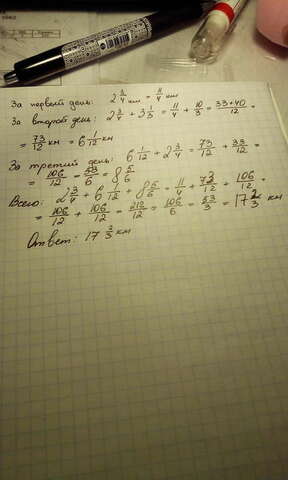 За первый день: 2 3/4 км = 11/4 км
За второй день: 2 3/4 + 3 1/3 = 11/4 + 10/3 = 33+40/12 =
= 73/12 км = 6 1/12 км
За третий день: 6 1/12 + 2 3/4 = 73/12 + 33/12 =
= 106/12 = 53/6 = 8 5/6
Всего: 2 3/4 + 6 1/12 + 8 5/6 = 11/4 + 73/12 + 106/12 =
= 106/12 + 106/12 = 212/12 = 106/6 = 53/3 = 17 2/3 км
Ответ: 17 2/3 км